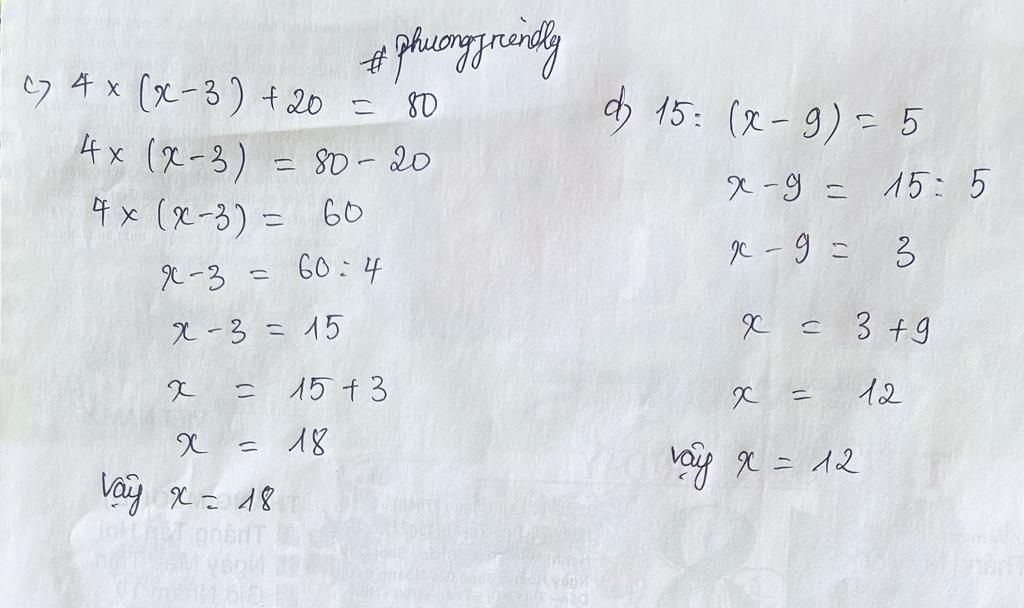 #phuongfriendly
c) 4 x (x-3) + 20 = 80
4 x (x-3) = 80 - 20
4 x (x-3) = 60
x-3 = 60 : 4
x - 3 = 15
x = 15 + 3
x = 18
Vậy x = 18
d) 15 : (x - 9) = 5
x - 9 = 15 : 5
x - 9 = 3
x = 3 + 9
x = 12
Vậy x = 12